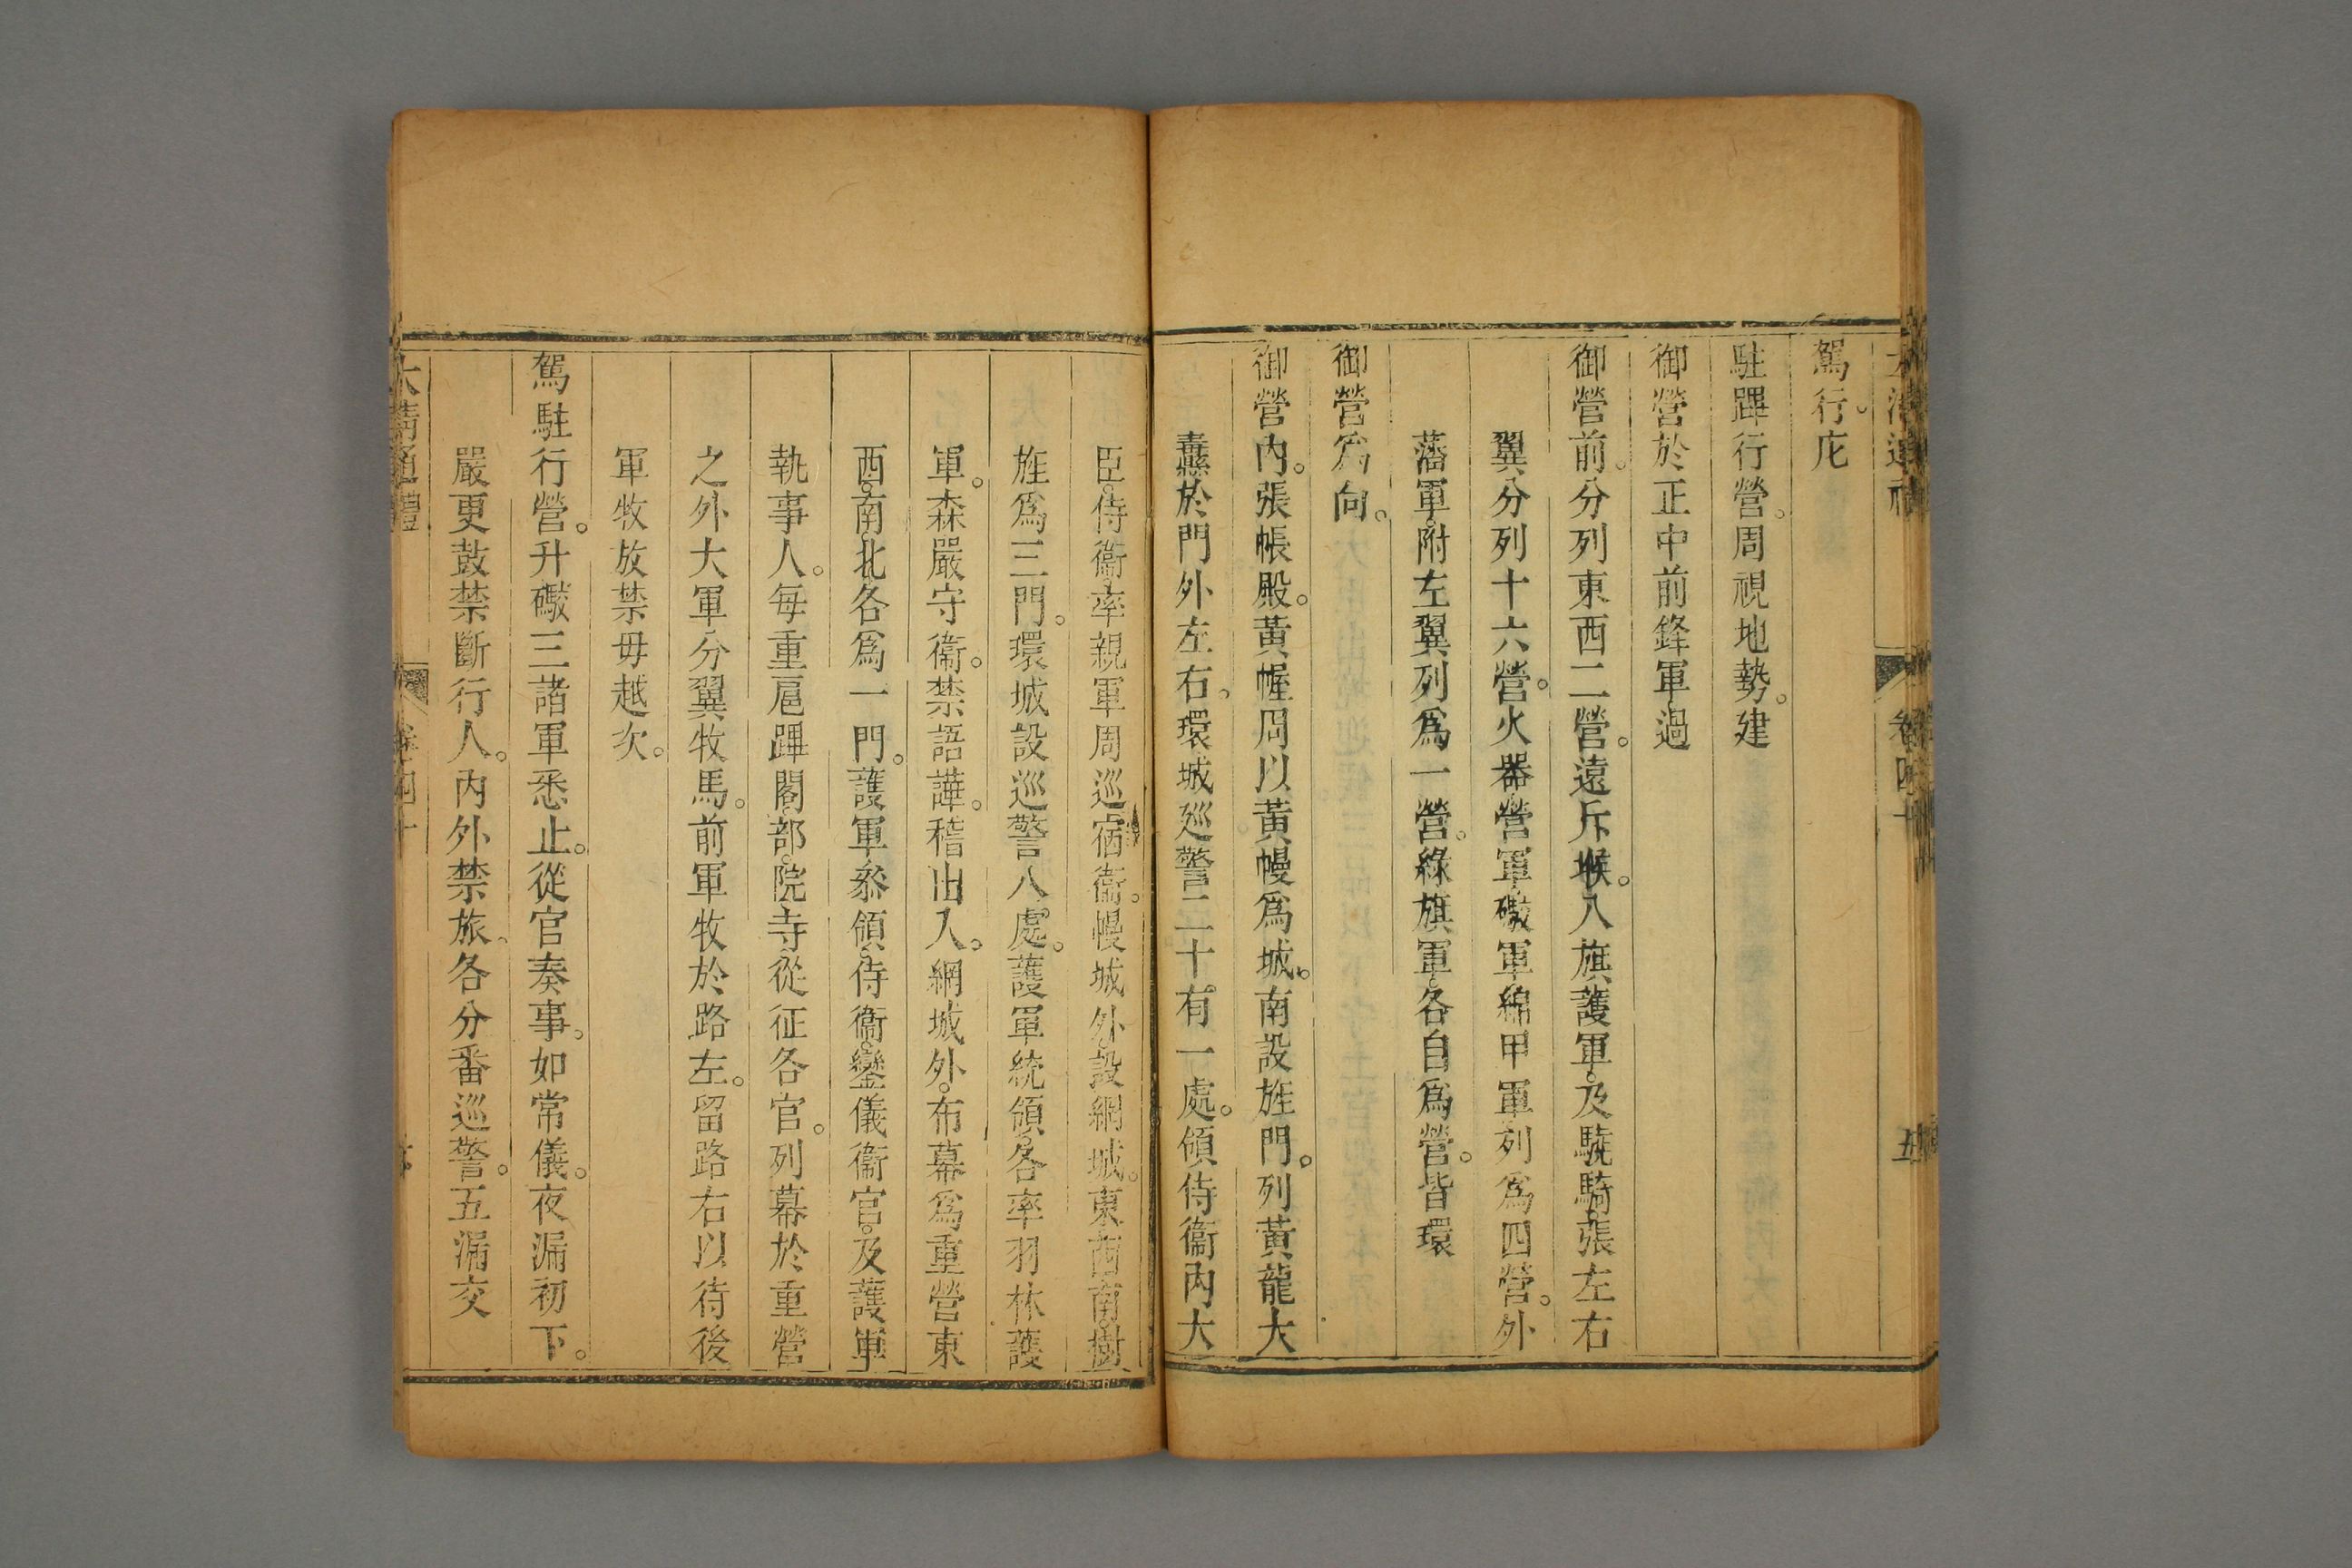 大清通禮 卷四十 五
駕行。庀
駐蹕行營。周視地勢。建
御營於正中前鋒軍過
御營前。分列東西二營。遠斥堠。八旗護軍。及驍騎。張左右
翼分列十六營。火器營軍礮軍綿甲軍列爲四營。外
藩軍。附左翼列爲一營。綠旗軍。各自爲營。皆環
御營爲向。
御營內。張帳殿。黃幄周以黃幔爲城。南設旌門。列黃龍大
纛於門外左右。環城巡警二十有一處。領侍衞內大
臣。侍衞。率親軍周巡宿衞。幔城外。設網城。東西南。樹
旌爲三門。環城設巡警八處。護軍統領。各率羽林護
軍。森嚴守衞。禁語譁。稽出入。網城外。布幕爲重營東
西。南。北。各爲一門。護軍叅領。侍衞。鑾儀衞官。及護軍
執事人。每重扈蹕閣。部。院寺從征各官。列幕於重營
之外大軍分翼牧馬。前軍牧於路左。留路右以待後
軍牧放禁毋越次。
駕駐行營。升礮三諸軍悉止。從官奏事。如常儀。夜漏初下。
嚴更鼓禁斷行人。內外禁旅。各分番巡警。五漏交
大清通禮 卷四十